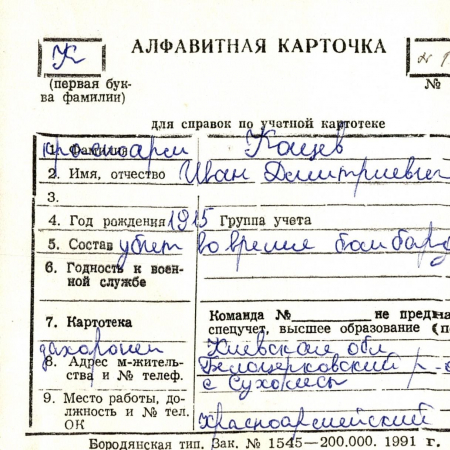 К
АЛФАВИТНАЯ КАРТОЧКА
(первая бук-
ва фамилии)
№
для справок по учетной картотеке
1. Фамилия Концев
2. Имя, отчество Иван Дмитриевич
3.
4. Год рождения 1915 Группа учета
5. Состав убит во время бомбард
6. Годность к воен-
ной службе
7. Картотека
Команда № не предна
спецучет, высшее образование (п
захоронен Киевская обл
8. Адрес м-житель-
ства и № телеф.
Белоцерковский р-
с Сухолесы
9. Место работы, до-
лжность и № тел.
ОК
Красноармейский
Бородянская тип. Зак. № 1545—200.000. 1991 г.